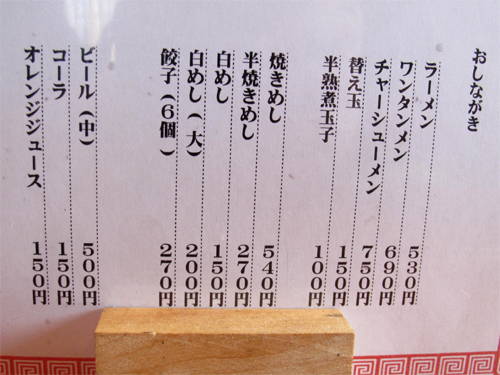 おしながき
ラーメン 530円
ワンタンメン 690円
チャーシューメン 750円
替え玉 150円
半熟煮玉子 100円
焼きめし 540円
半焼きめし 270円
白めし 150円
白めし(大) 200円
餃子(6個) 270円
ビール(中) 500円
コーラ 150円
オレンジジュース 150円